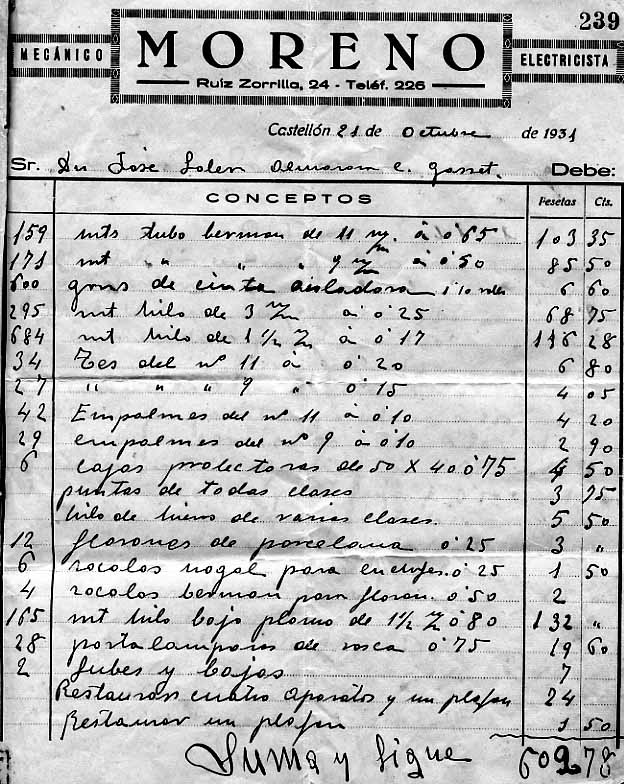 239
MECÁNICO
MORENO
ELECTRICISTA
Ruíz Zorrilla, 24 - Teléf. 226
Castellón 21 de Octubre de 1931
Sr. Dn José Soler Debe:
CONCEPTOS Pesetas Cts.
159 mts tubo berman de 11 m/m a 0'65 103 35
171 mt " " " 9 m/m a 0'50 85 50
600 grms de cinta aisladora 6 60
295 mt hilo de 3 m/m a 0'25 68 75
684 mt hilo de 1 1/2 m/m a 0'17 116 28
34 Tes del nº 11 a 0'20 6 80
27 " " " 9 " 0'15 4 05
42 Empalmes del nº 11 a 0'10 4 20
29 empalmes del nº 9 a 0'10 2 90
6 cajas protectoras de 50 X 40 0'75 4 50
puntas de todas clases 3 75
hilo de hierro de varias clases. 5 50
12 florones de porcelana 0'25 3 "
6 zocalos nogal para enchufes. 0'25 1 50
4 zocalos berman para floron. 0'50 2
165 mt hilo bajo plomo de 1 1/2 m/m 0'80 132 "
28 portalamparas de rosca 0'75 19 60
2 Subes y bajas 7
Restaurar cuatro aparatos y un plafon 24
Restaurar un plafon 1 50
Suma y Sigue 609 78